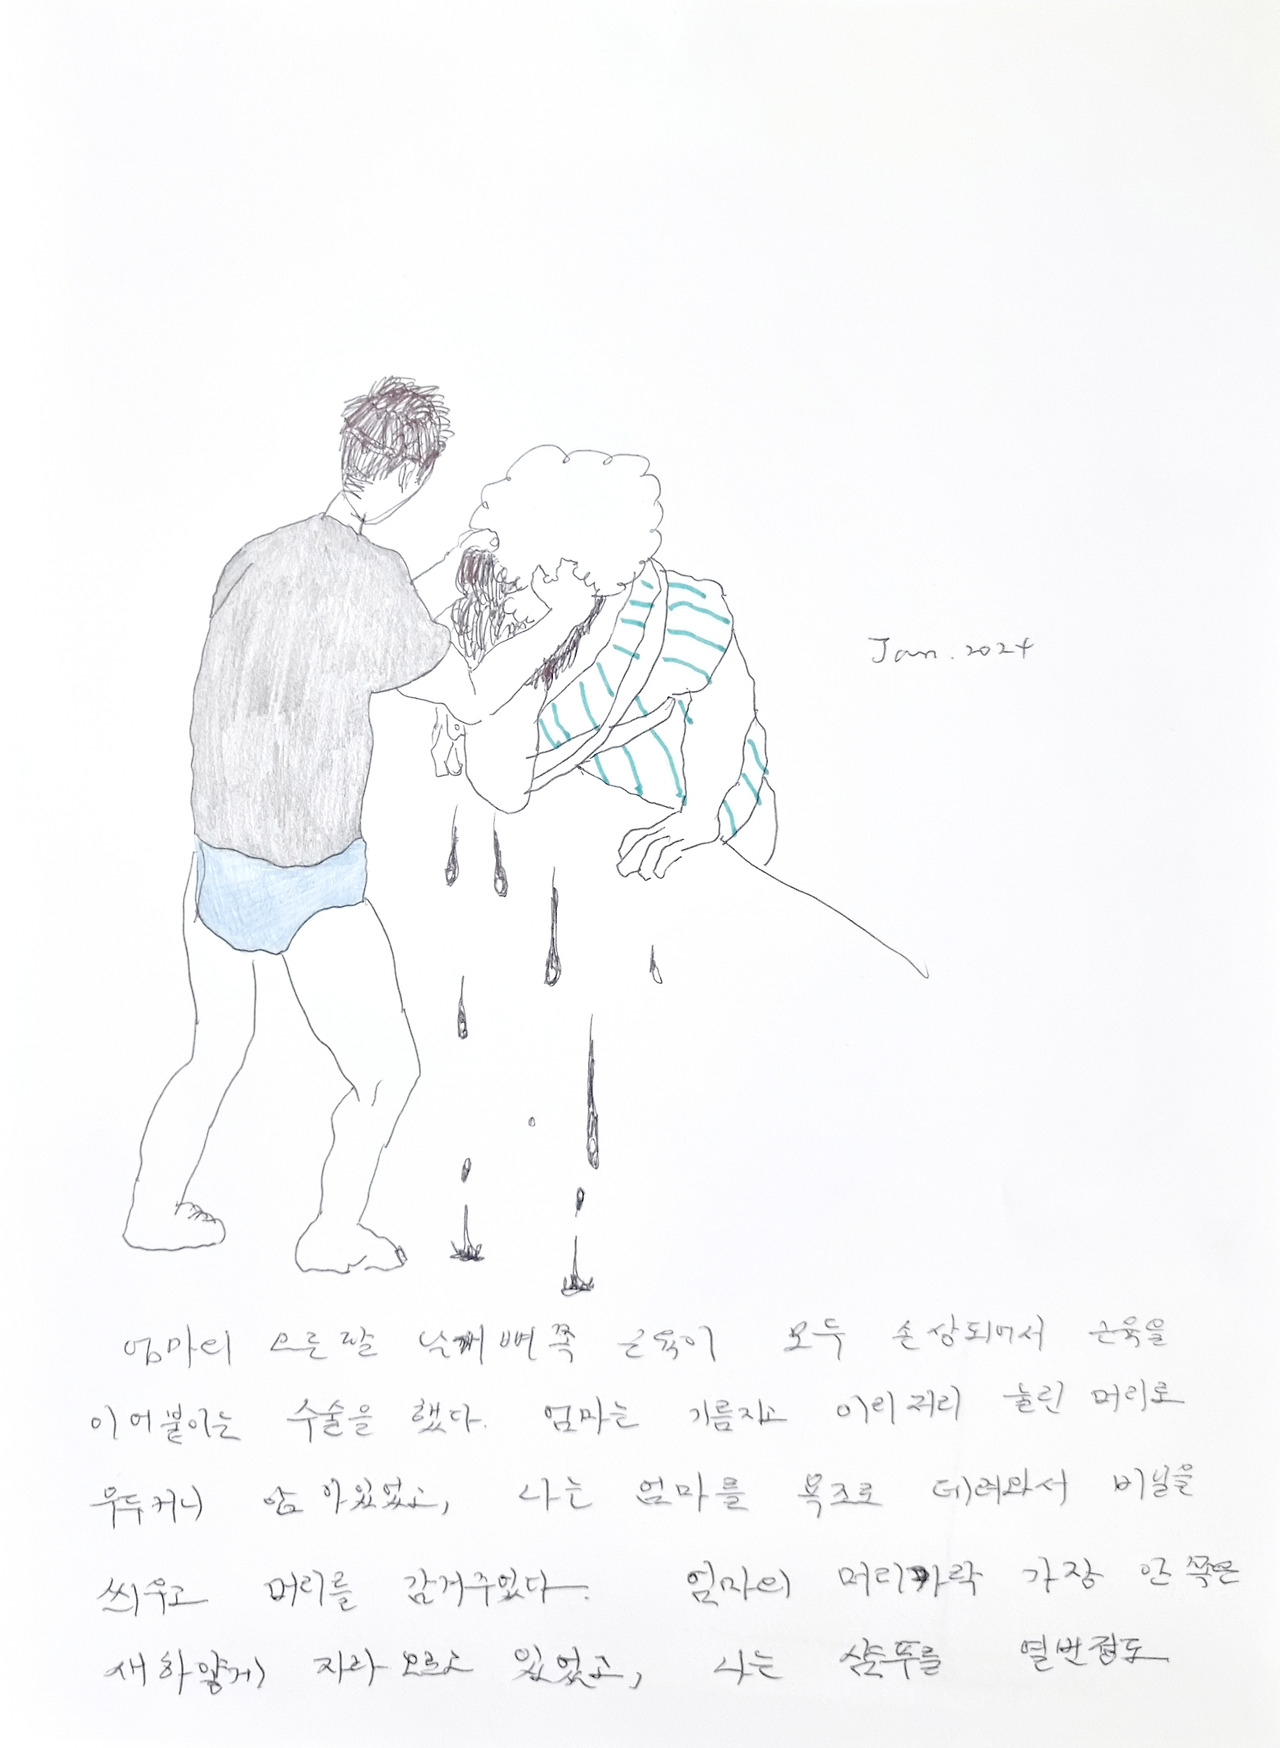 Jan. 2024
엄마의 오른팔 날개뼈쪽 근육이 모두 손상되어서 근육을
이어붙이는 수술을 했다. 엄마는 기름지고 이리저리 눌린 머리로
우두커니 앉아있었고, 나는 엄마를 욕조로 데려와서 비닐을
씌우고 머리를 감겨주었다. 엄마의 머리카락 가장 안쪽은
새하얗게 자라오르고 있었고, 나는 샴푸를 열번정도